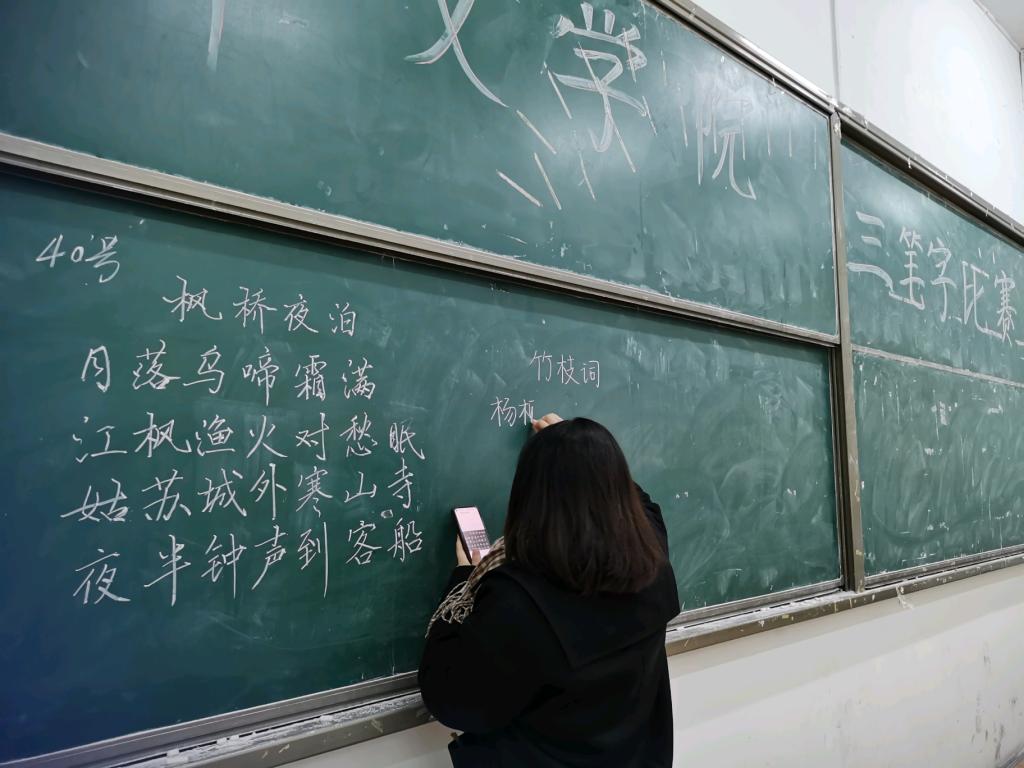 文学院
三笔字比赛
40号
枫桥夜泊
月落乌啼霜满
江枫渔火对愁眠
姑苏城外寒山寺
夜半钟声到客船
竹枝词
杨